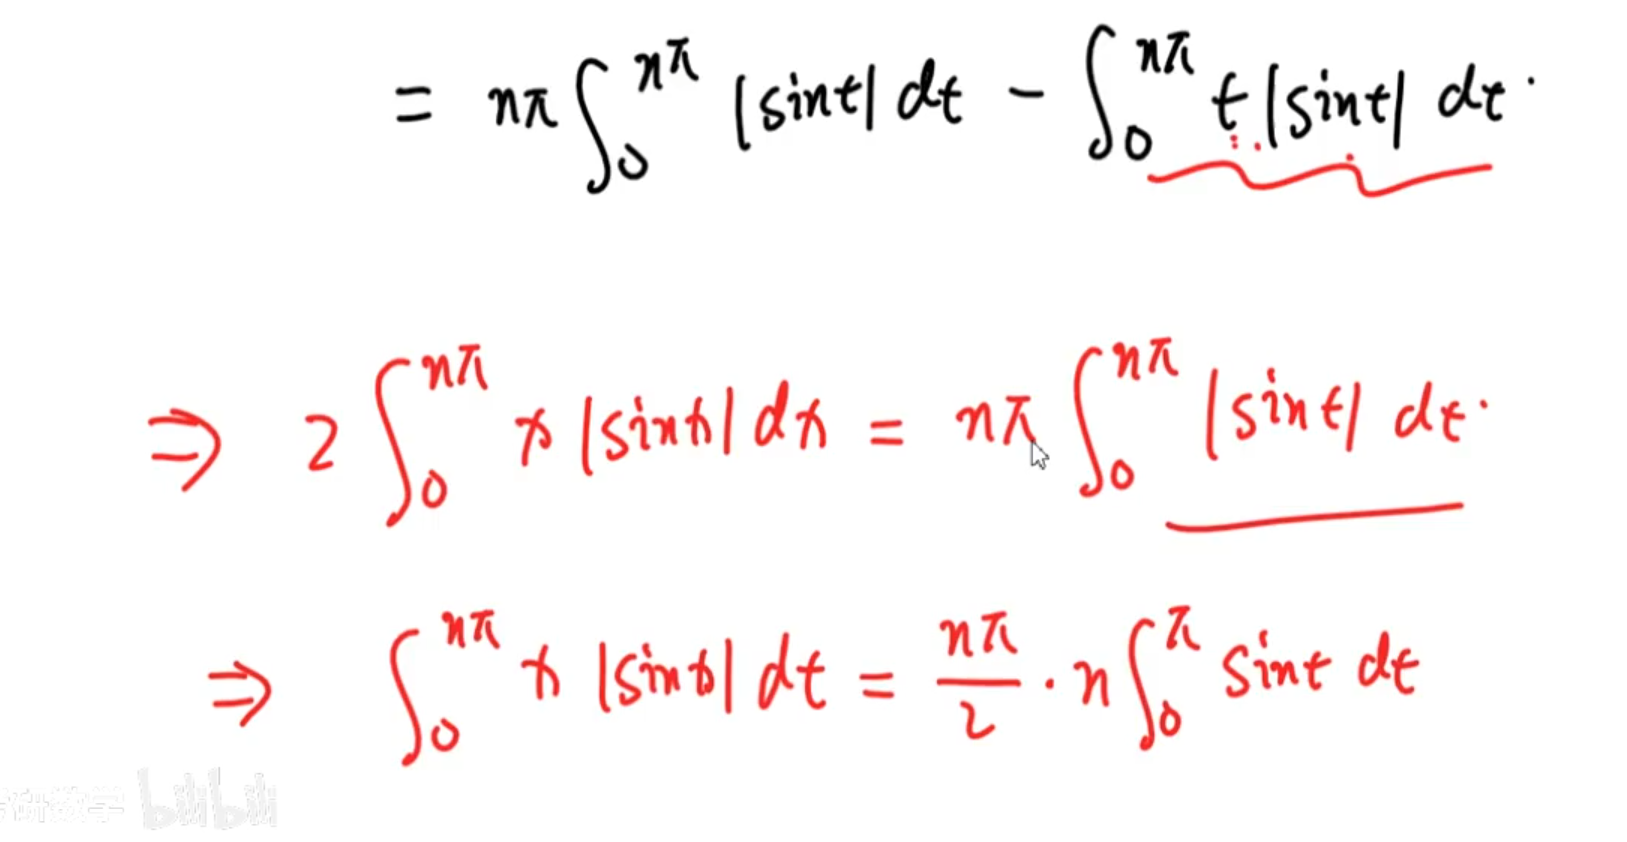 = nπ ∫₀^{nπ} |sint| dt - ∫₀^{nπ} t |sint| dt.
⇒ 2 ∫₀^{nπ} x |sinx| dx = nπ ∫₀^{nπ} |sint| dt.
⇒ ∫₀^{nπ} x |sinx| dt = nπ/2 · n ∫₀^{π} sint dt
研数学 bilibili